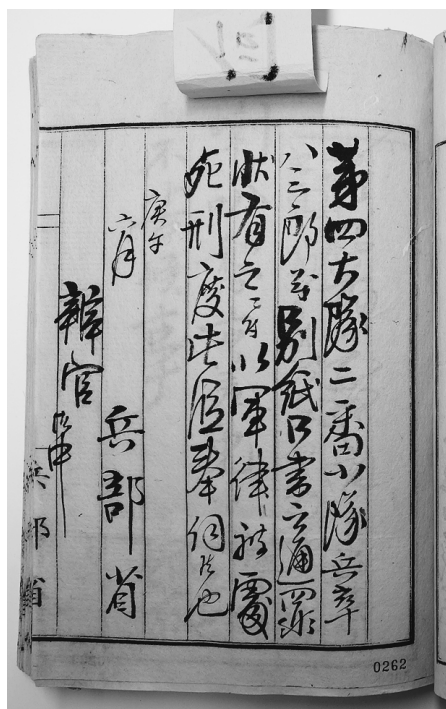 第四大隊二番小隊兵卒
八三郎等別紙口書之通罪
状有之候間以軍律被處
死刑度此段奉伺候也
庚午
六月
兵部省
辨官
御中
兵部省
0262